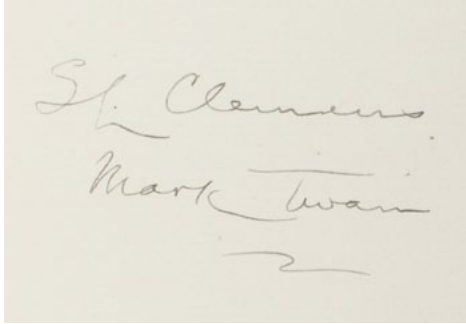 SL. Clemens.
Mark Twain